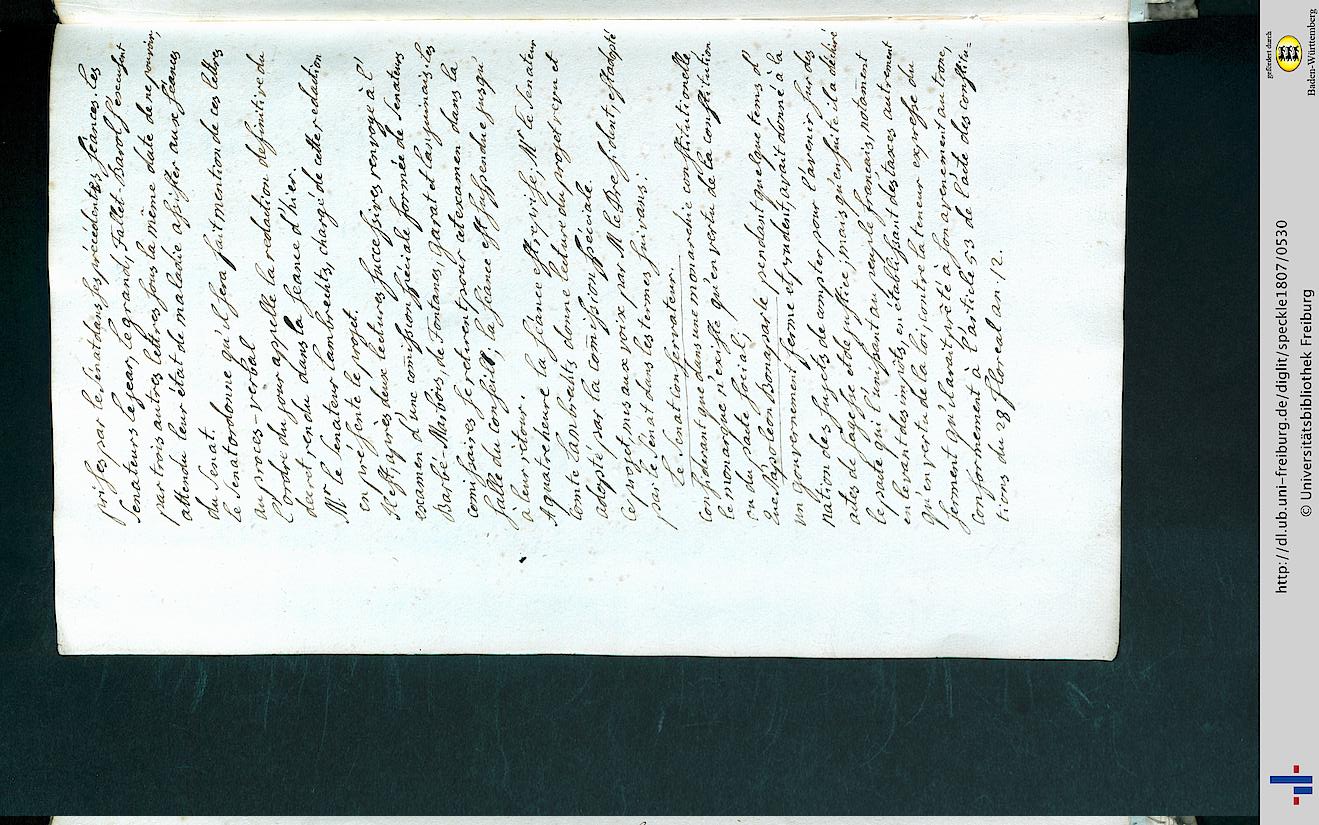 prises par le Senat dans les précédentes séances, les
Senateurs Lejear, Legrand, Fallet-Barrol s'excusent
par trois autres lettres sous la même date de ne pouvoir,
attendu leur état de maladie assister aux séances
du Senat.
le Senat ordonne qu'il sera fait mention de ces lettres
au proces-verbal
l'ordre du jour appelle la redaction definitive du
decret rendu dans la séance d'hier.
Mr le Senateur Lambrechts, chargé de cette redaction
en présente le projet.
Il est, après deux lectures successives, renvoyé à l'
examen d'une comission spéciale formée de Senateurs
Barbé-Marbois, de Fontanes, Garat et Lanjuinais. les
comissaires se retirent pour cet examen dans la
salle du conseil, la séance est suspendue jusqu'
à leur retour.
A quatre heure la séance est reprise, Mr le Senateur
Comte Lambrechts donne lecture du projet revu et
adopté par la comission spéciale.
Ce projet mis aux voix par M le President, est adopté
par le Senat dans les termes suivans:
Le Senat conservateur.
Considerant que dans une monarchie constitutionelle,
le monarque n'existe qu'en vertu de la constitution
ou du pacte social;
Que Napoleon Bonaparte pendant quelque tems d'
un gouvernement ferme et prudent, avait donné à la
nation des sujets de compter pour l'avenir sur des
actes de sagesse et de justice, mais qu'ensuite il a déchiré
le pacte qui l'unissait au peuple français, notament
en levant des impôts, en établissant des taxes autrement
qu'en vertu de la loi, contre la teneur expresse du
serment qu'il avait preté à son avenement au trone,
conformement à l'article 53 de l'acte des constitu-
tions du 28 floreal an. 12.
gefördert durch
Baden-Württemberg
http://dl.ub.uni-freiburg.de/diglit/speckle1807/0530
© Universitätsbibliothek Freiburg